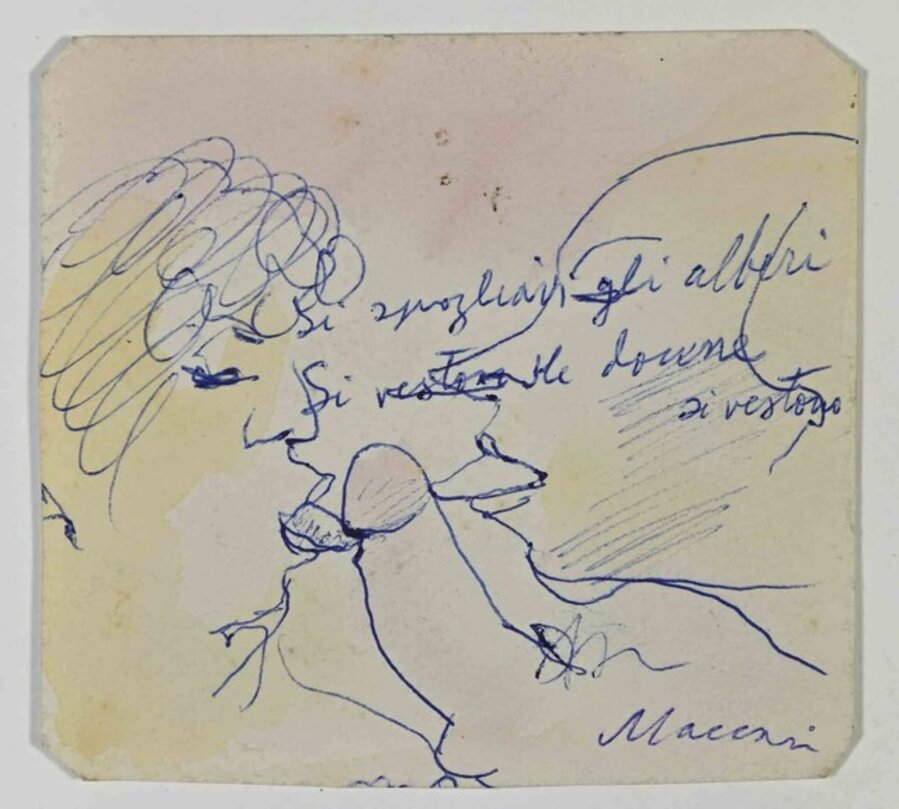 Si spogliano gli alberi
Si vestono le donne
si vestono
Maccari